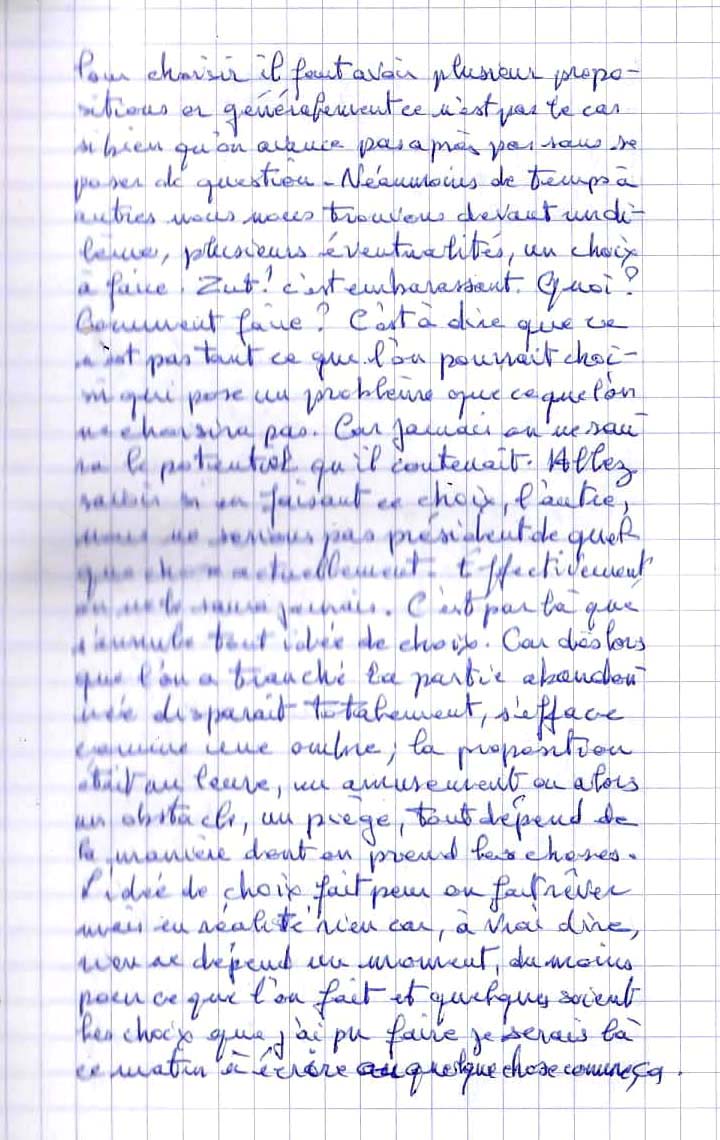 Pour choisir il faut avoir plusieur propo-
sitions or généralement ce n'est pas le cas
si bien qu'on avance pas après pas sans se
poser de question - Néanmoins de temps à
autres nous nous trouvons devant un di-
lème, plusieurs éventualités, un choix
à faire. Zut! c'est embarassant. Quoi?
Comment faire? C'est à dire que ce
n'est pas tant ce que l'on pourrait choi-
sir qui pose un problème que ce que l'on
ne choisira pas. Car jamais on ne sau-
ra le potentiel qu'il contenait. Allez
savoir si en faisant ce choix, l'autre,
nous ne serions pas président de quel
que chose actuellement. Effectivement
on ne le saura jamais. C'est par là que
s'annule tout idée de choix. Car dès lors
que l'on a tranché la partie abandon-
née disparait totalement, s'efface
comme une ombre; la proposition
était un leure, un amusement ou alors
un obstacle, un piège, tout dépend de
la manière dont on prend les choses.
L'idée de choix fait peur ou fait rêver
mais en réalité rien car, à vrai dire,
rien ne dépend un moment, du moins
pour ce que l'on fait et quelques soient
les choix que j'ai pu faire je serais là
ce matin à écrire quelque chose comme ça.